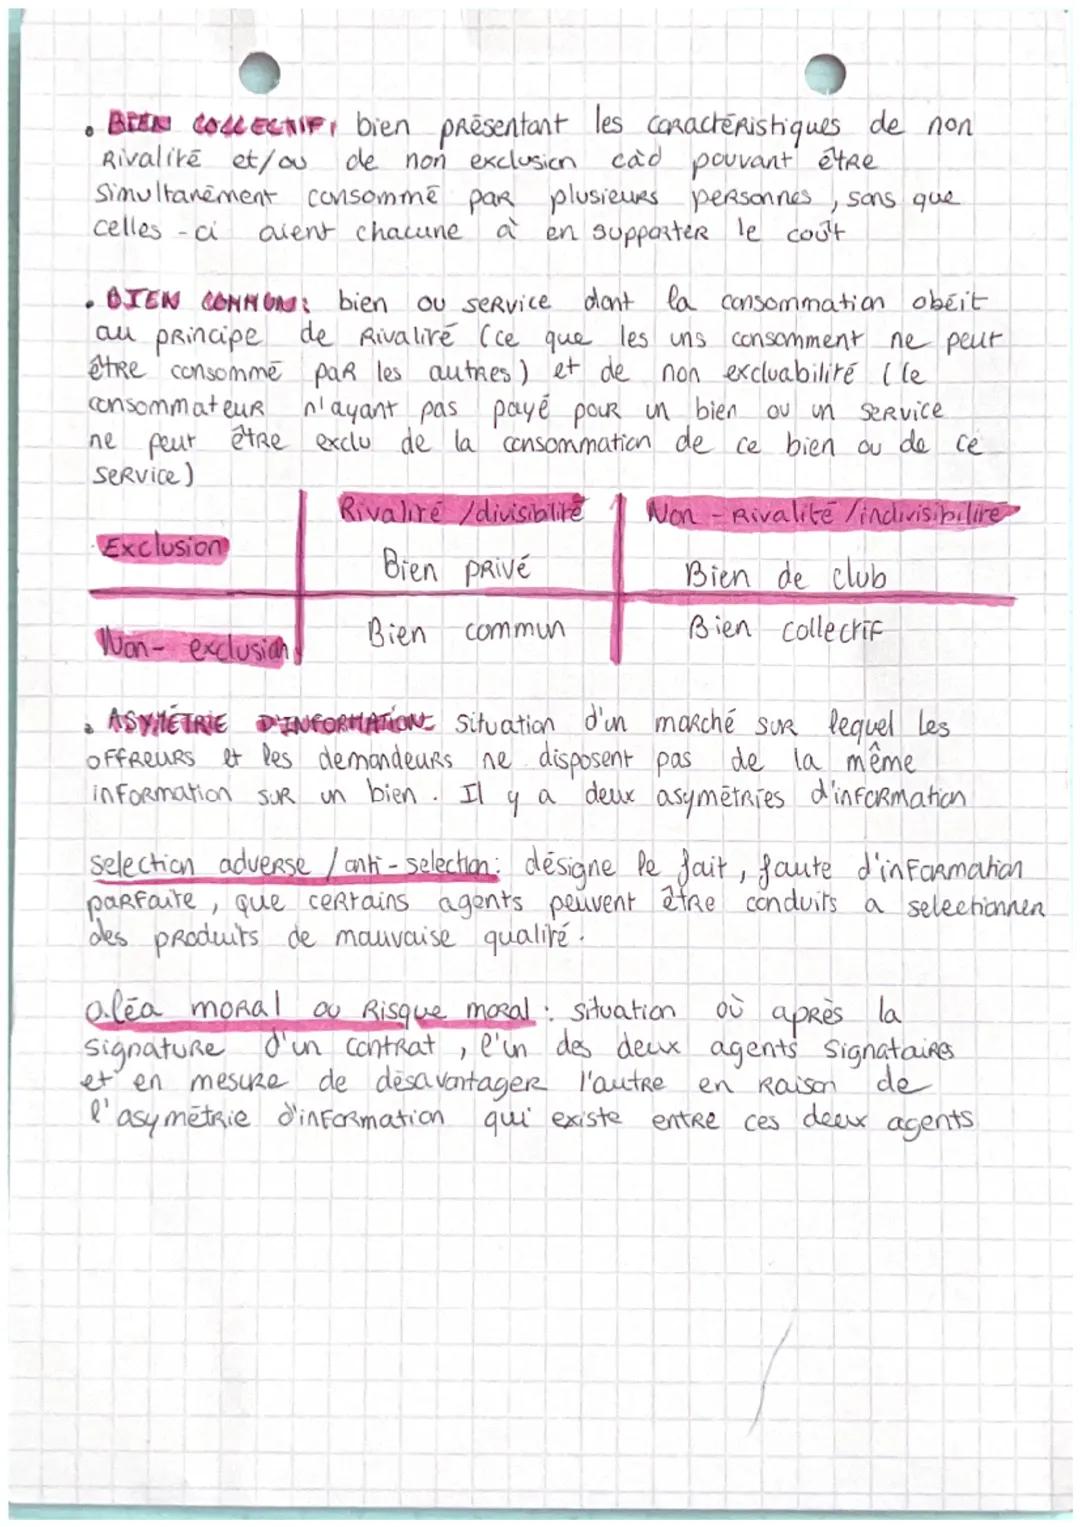 • BIEN COLLECTIF: bien présentant les caractéristiques de non
Rivalité et/ou de non exclusion càd pouvant être
simultanément consommé par plusieurs personnes, sans que
celles-ci aient chacune à en supporter le coût
• BIEN COMMUN: bien ou service dont la consommation obéit
au principe de Rivalité (ce que les uns consomment ne peut
être consommé par les autres) et de non excluabilité (le
consommateur n'ayant pas payé pour un bien ou un service
ne peut être exclu de la consommation de ce bien ou de ce
service)
Rivalité /divisibilité Non-Rivalité /indivisibilité
Exclusion Bien privé Bien de club
Non-exclusion Bien commun Bien collectif
• ASYMÉTRIE D'INFORMATION: situation d'un marché sur lequel les
offreurs et les demandeurs ne disposent pas de la même
information sur un bien. Il y a deux asymétries d'information
selection adverse / anti-selection: désigne le fait, faute d'information
parfaite, que certains agents peuvent être conduits a selectionner
des produits de mauvaise qualité.
aléa moral ou Risque moral: situation où après la
signature d'un contrat, l'un des deux agents signataires
et en mesure de désavantager l'autre en raison de
l'asymétrie d'information qui existe entre ces deux agents